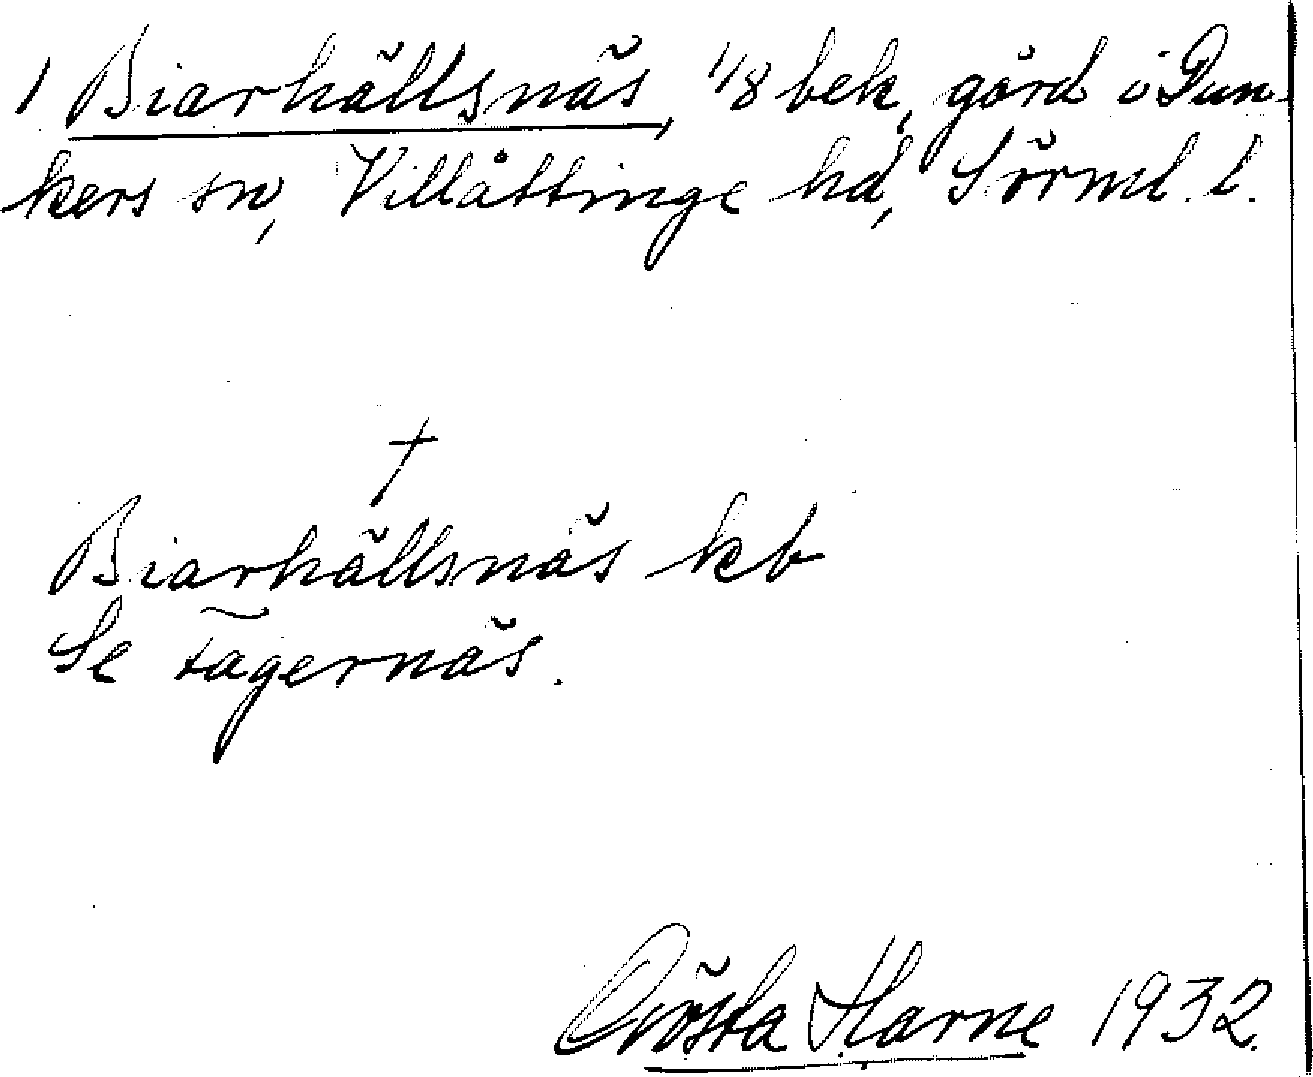 1 Biarhällsnäs, 1/8 bek, gård i Dun-
kers sn, Villåttinge hd, Sörml. l.
†
Biarhällsnäs kb
Se Tägernäs.
Gösta Harne 1932.